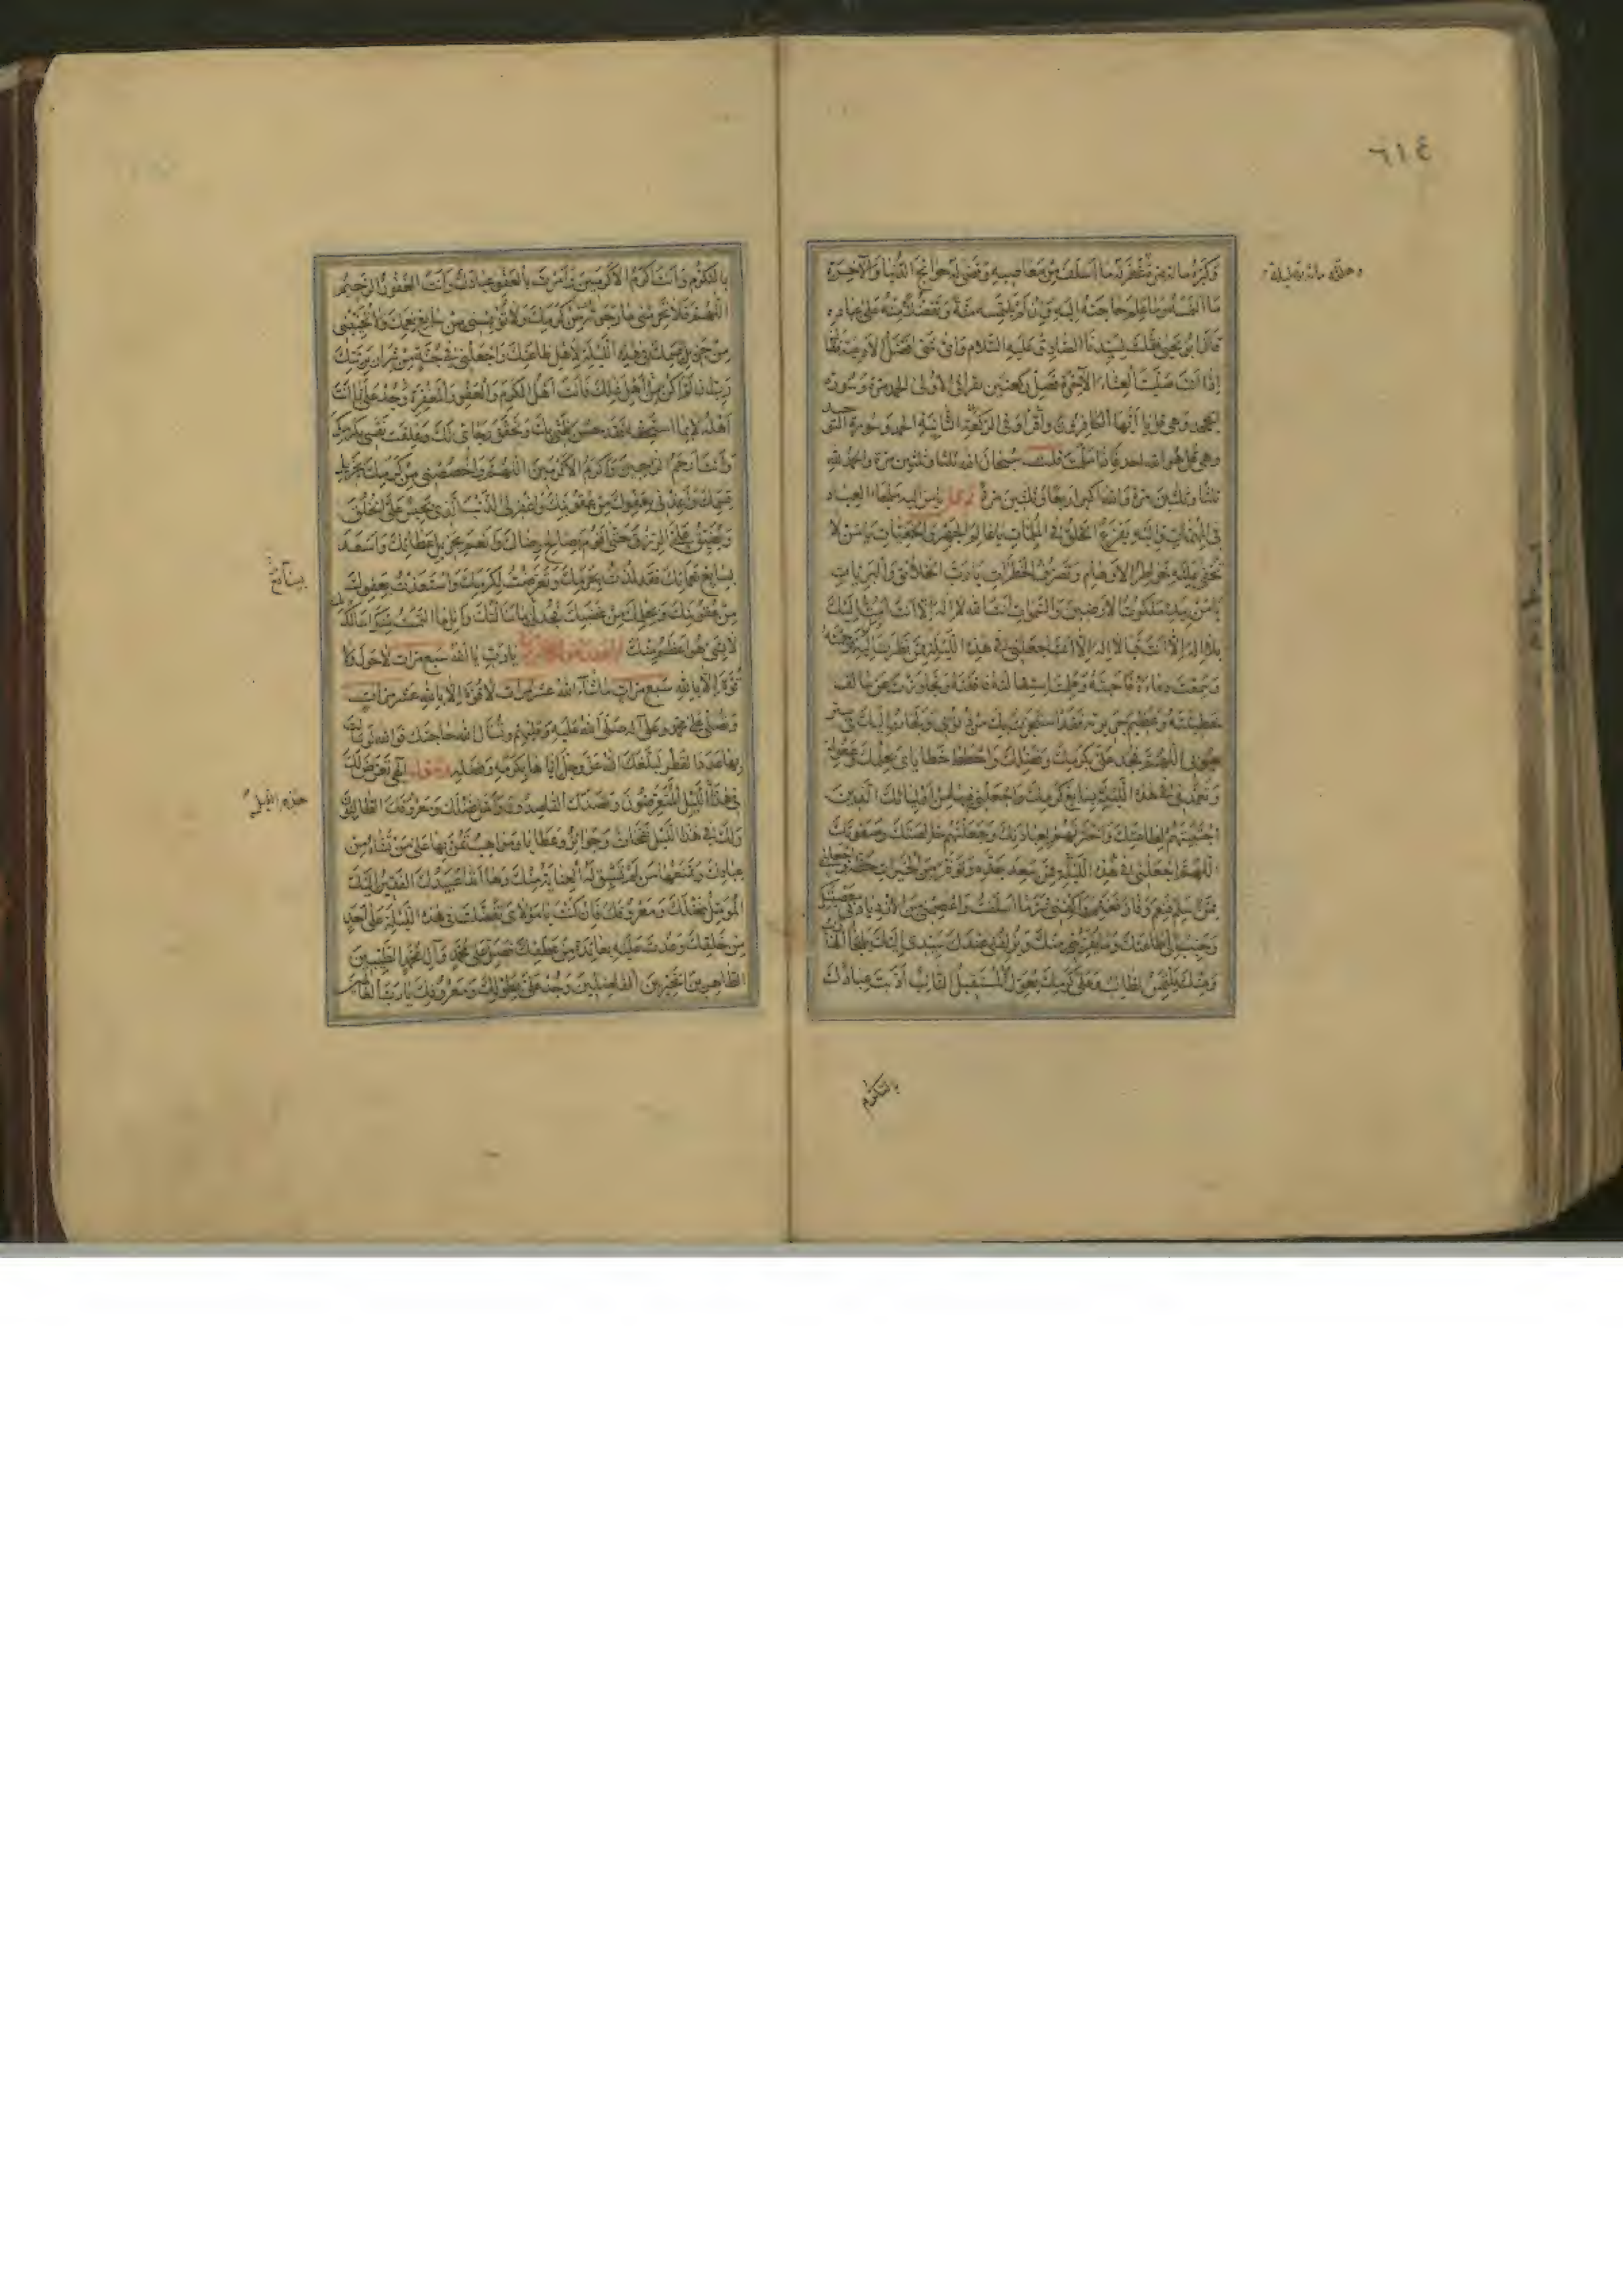 ٦١٤
وكبره مائة مرة غفر له ما أسلف من معاصيه وقضى له حوائج الدنيا والآخرة
ما التمسه وما علم حاجته إليه وإن لم يلتمسه منة وتفضلا منه على عباده
قال أبو يحيى فقلت لسيدنا الصادق عليه السلام وأي شيء أفضل الأدعية فقال
إذا أنت صليت العشاء الآخرة فصل ركعتين تقرأ في الأولى الحمد مرة وسورة
الجحد وهي قل يا أيها الكافرون واقرأ في الركعة الثانية الحمد وسورة التوحيد
وهي قل هو الله أحد فإذا سلمت قلت سبحان الله ثلثا وثلثين مرة والحمد لله
ثلثا وثلثين مرة والله أكبر أربعا وثلثين مرة ثم قل يا من إليه ملجأ العباد
في المهمات وإليه يفزع الخلق في الملمات يا عالم الجهر والخفيات يا من لا
تخفى عليه خواطر الأوهام وتصرف الخطرات يا رب الخلائق والبريات
يا من بيده ملكوت الأرضين والسموات أنت الله لا إله إلا أنت أمت إليك
بلا إله إلا أنت فيا لا إله إلا أنت اجعلني في هذه الليلة ممن نظرت إليه فرحمته
وسمعت دعاءه فأجبته وعلمت استقالته فأقلته وتجاوزت عن سالف
خطيئته وعظيم جريرته فقد استجرت بك من ذنوبي ولجأت إليك في ستر
عيوبي اللهم فجد علي بكرمك وفضلك واحطط خطاياي بحلمك وعفوك
وتغمدني في هذه الليلة بسابغ كرمك واجعلني فيها من أوليائك الذين
اجتبيتهم لطاعتك واخترتهم لعبادتك وجعلتهم خالصتك وصفوتك
اللهم اجعلني في هذه الليلة ممن سعد جده وتوفر من الخيرات حظه واجعلني
ممن سلم فنعم وفاز فغنم واكفني شر ما أسلفت واعصمني من الازدياد في معصيتك
وحبب إلي طاعتك وما يقربني منك ويزلفني عندك سيدي إليك يلجأ الهارب
ومنك يلتمس الطالب وعلى كرمك يعول المستقيل التائب أدبت عبادك
بالتكرم
بالتكرم وأنت أكرم الأكرمين وأمرت بالعفو عبادك وأنت الغفور الرحيم
اللهم فلا تحرمني ما رجوت من كرمك ولا تؤيسني من سابغ نعمك ولا تخيبني
من جزيل قسمك في هذه الليلة لأهل طاعتك واجعلني في جنة من شرار بريتك
رب إن لم أكن من أهل ذلك فأنت أهل الكرم والعفو والمغفرة وجد علي بما أنت
أهله لا بما أستحقه فقد حسن ظني بك وتحقق رجائي لك وعلقت نفسي بكرمك
وأنت أرحم الراحمين وأكرم الأكرمين اللهم واخصصني من كرمك بجزيل
قسمك وأعوذ بعفوك من عقوبتك واغفر لي الذنب الذي يحبس علي الخلق
ويضيق علي الرزق حتى أقوم بصالح رضاك وأنعم بجزيل عطائك وأسعد
بسابغ نعمائك فقد لذت بحرمك وتعرضت لكرمك واستعذت بعفوك
من عقوبتك وبحلمك من غضبك فجد بما سألتك وأنل ما التمست منك أسألك بك
لا بشيء هو أعظم منك يا رب يا الله سبع مرات لا حول ولا
قوة إلا بالله سبع مرات ما شاء الله عشر مرات لا قوة إلا بالله عشر مرات
وتصلي على محمد وعلى آله صلى الله عليه وعليهم وتسأل الله حاجتك فوالله لو سألت
بها عدد القطر لبلغك الله عز وجل إياها بكرمه وفضله وتقول إلهي تعرض لك
في هذا الليل المتعرضون وقصدك القاصدون وأمل فضلك ومعروفك الطالبون
ولك في هذا الليل نفحات وجوائز وعطايا ومواهب تمن بها على من تشاء من
عبادك وتمنعها من لم تسبق له العناية منك وها أنا عبيدك الفقير إليك
المؤمل فضلك ومعروفك فإن كنت يا مولاي تفضلت في هذه الليلة على أحد
من خلقك وعدت عليه بعائدة من عطفك فصل على محمد وآل محمد الطيبين
الطاهرين الخيرين الفاضلين وجد علي بطولك ومعروفك يا رب العالمين